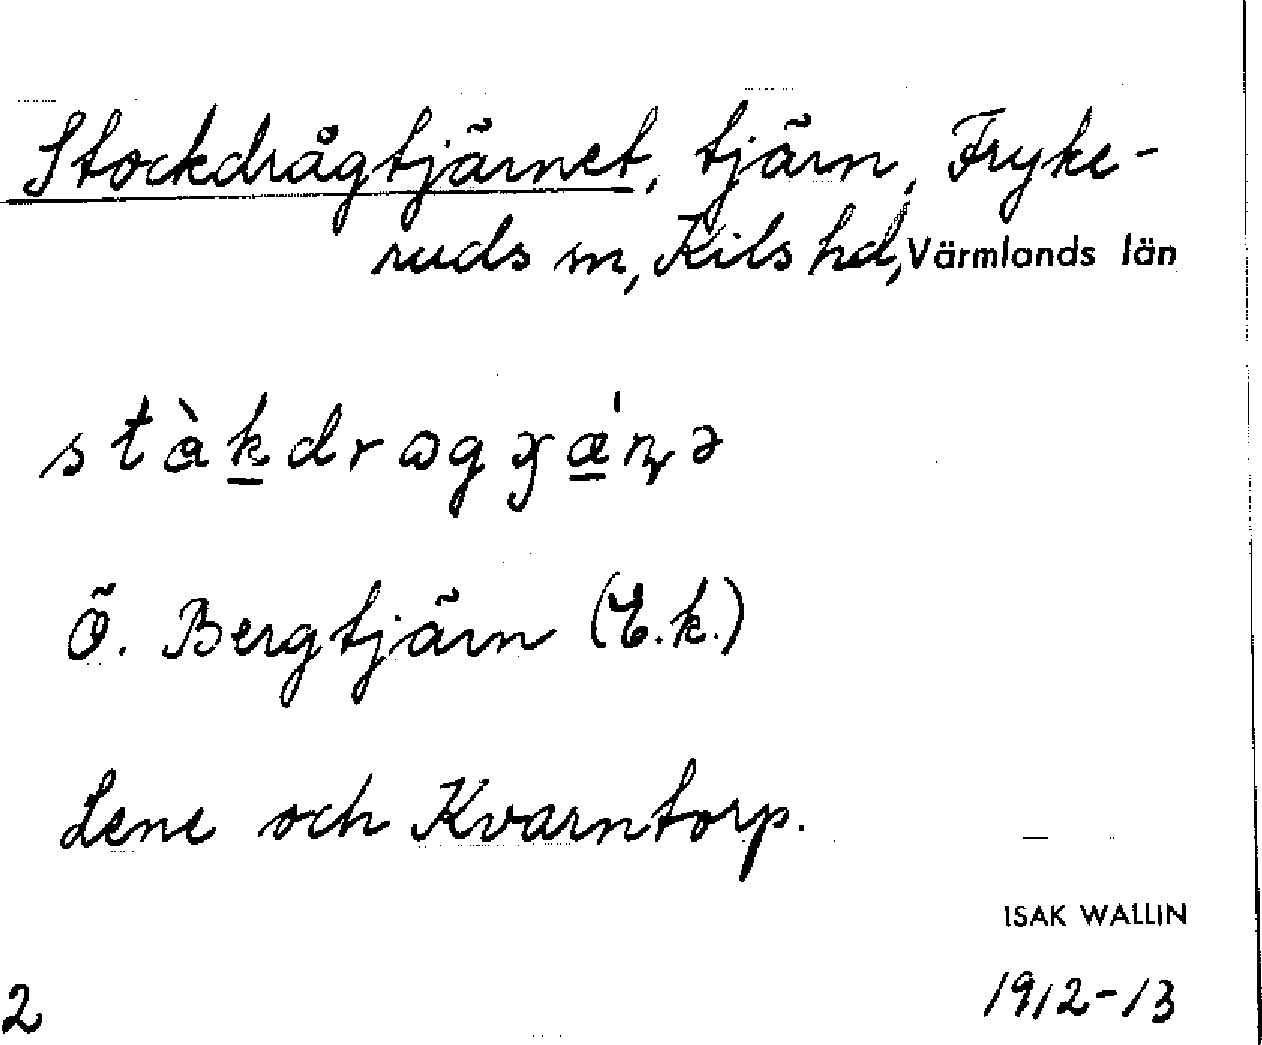 Stockdrågtjärnet, tjärn, Fryke-
ruds sn, Kils hd, Värmlands län
Ö. Bergtjärn (E.k.)
Lene och Kvarntorp.
ISAK WALLIN
2 1912-13